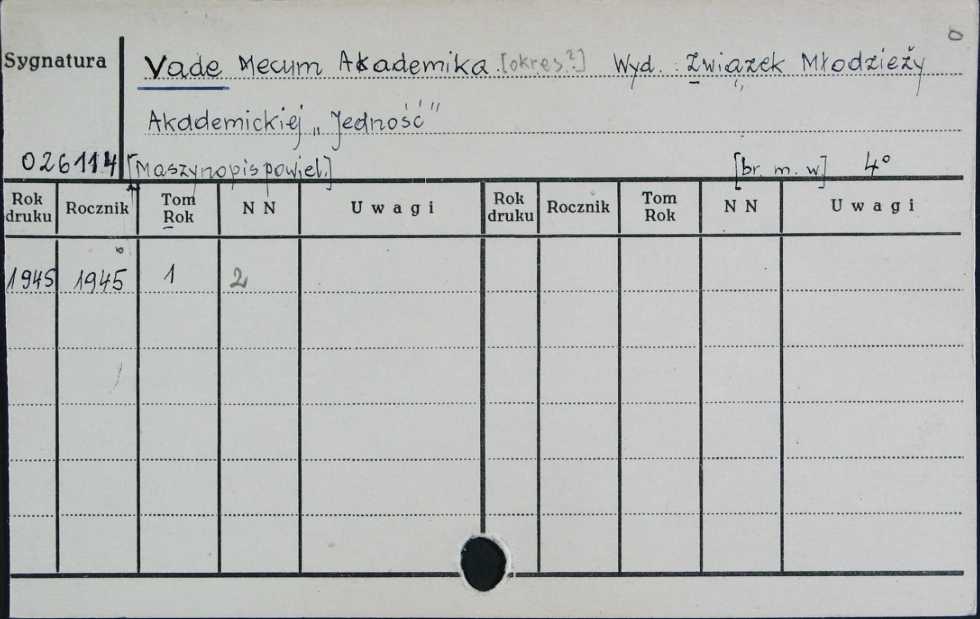 Sygnatura Vade Mecum Akademika [okres.?] Wyd. Związek Młodzieży
Akademickiej „Jedność"
026114 [Maszynopis powiel.] [br m. w] 4°
Rok druku Rocznik Tom Rok N N Uwagi Rok druku Rocznik Tom Rok N N Uwagi
1945 1945 1 2